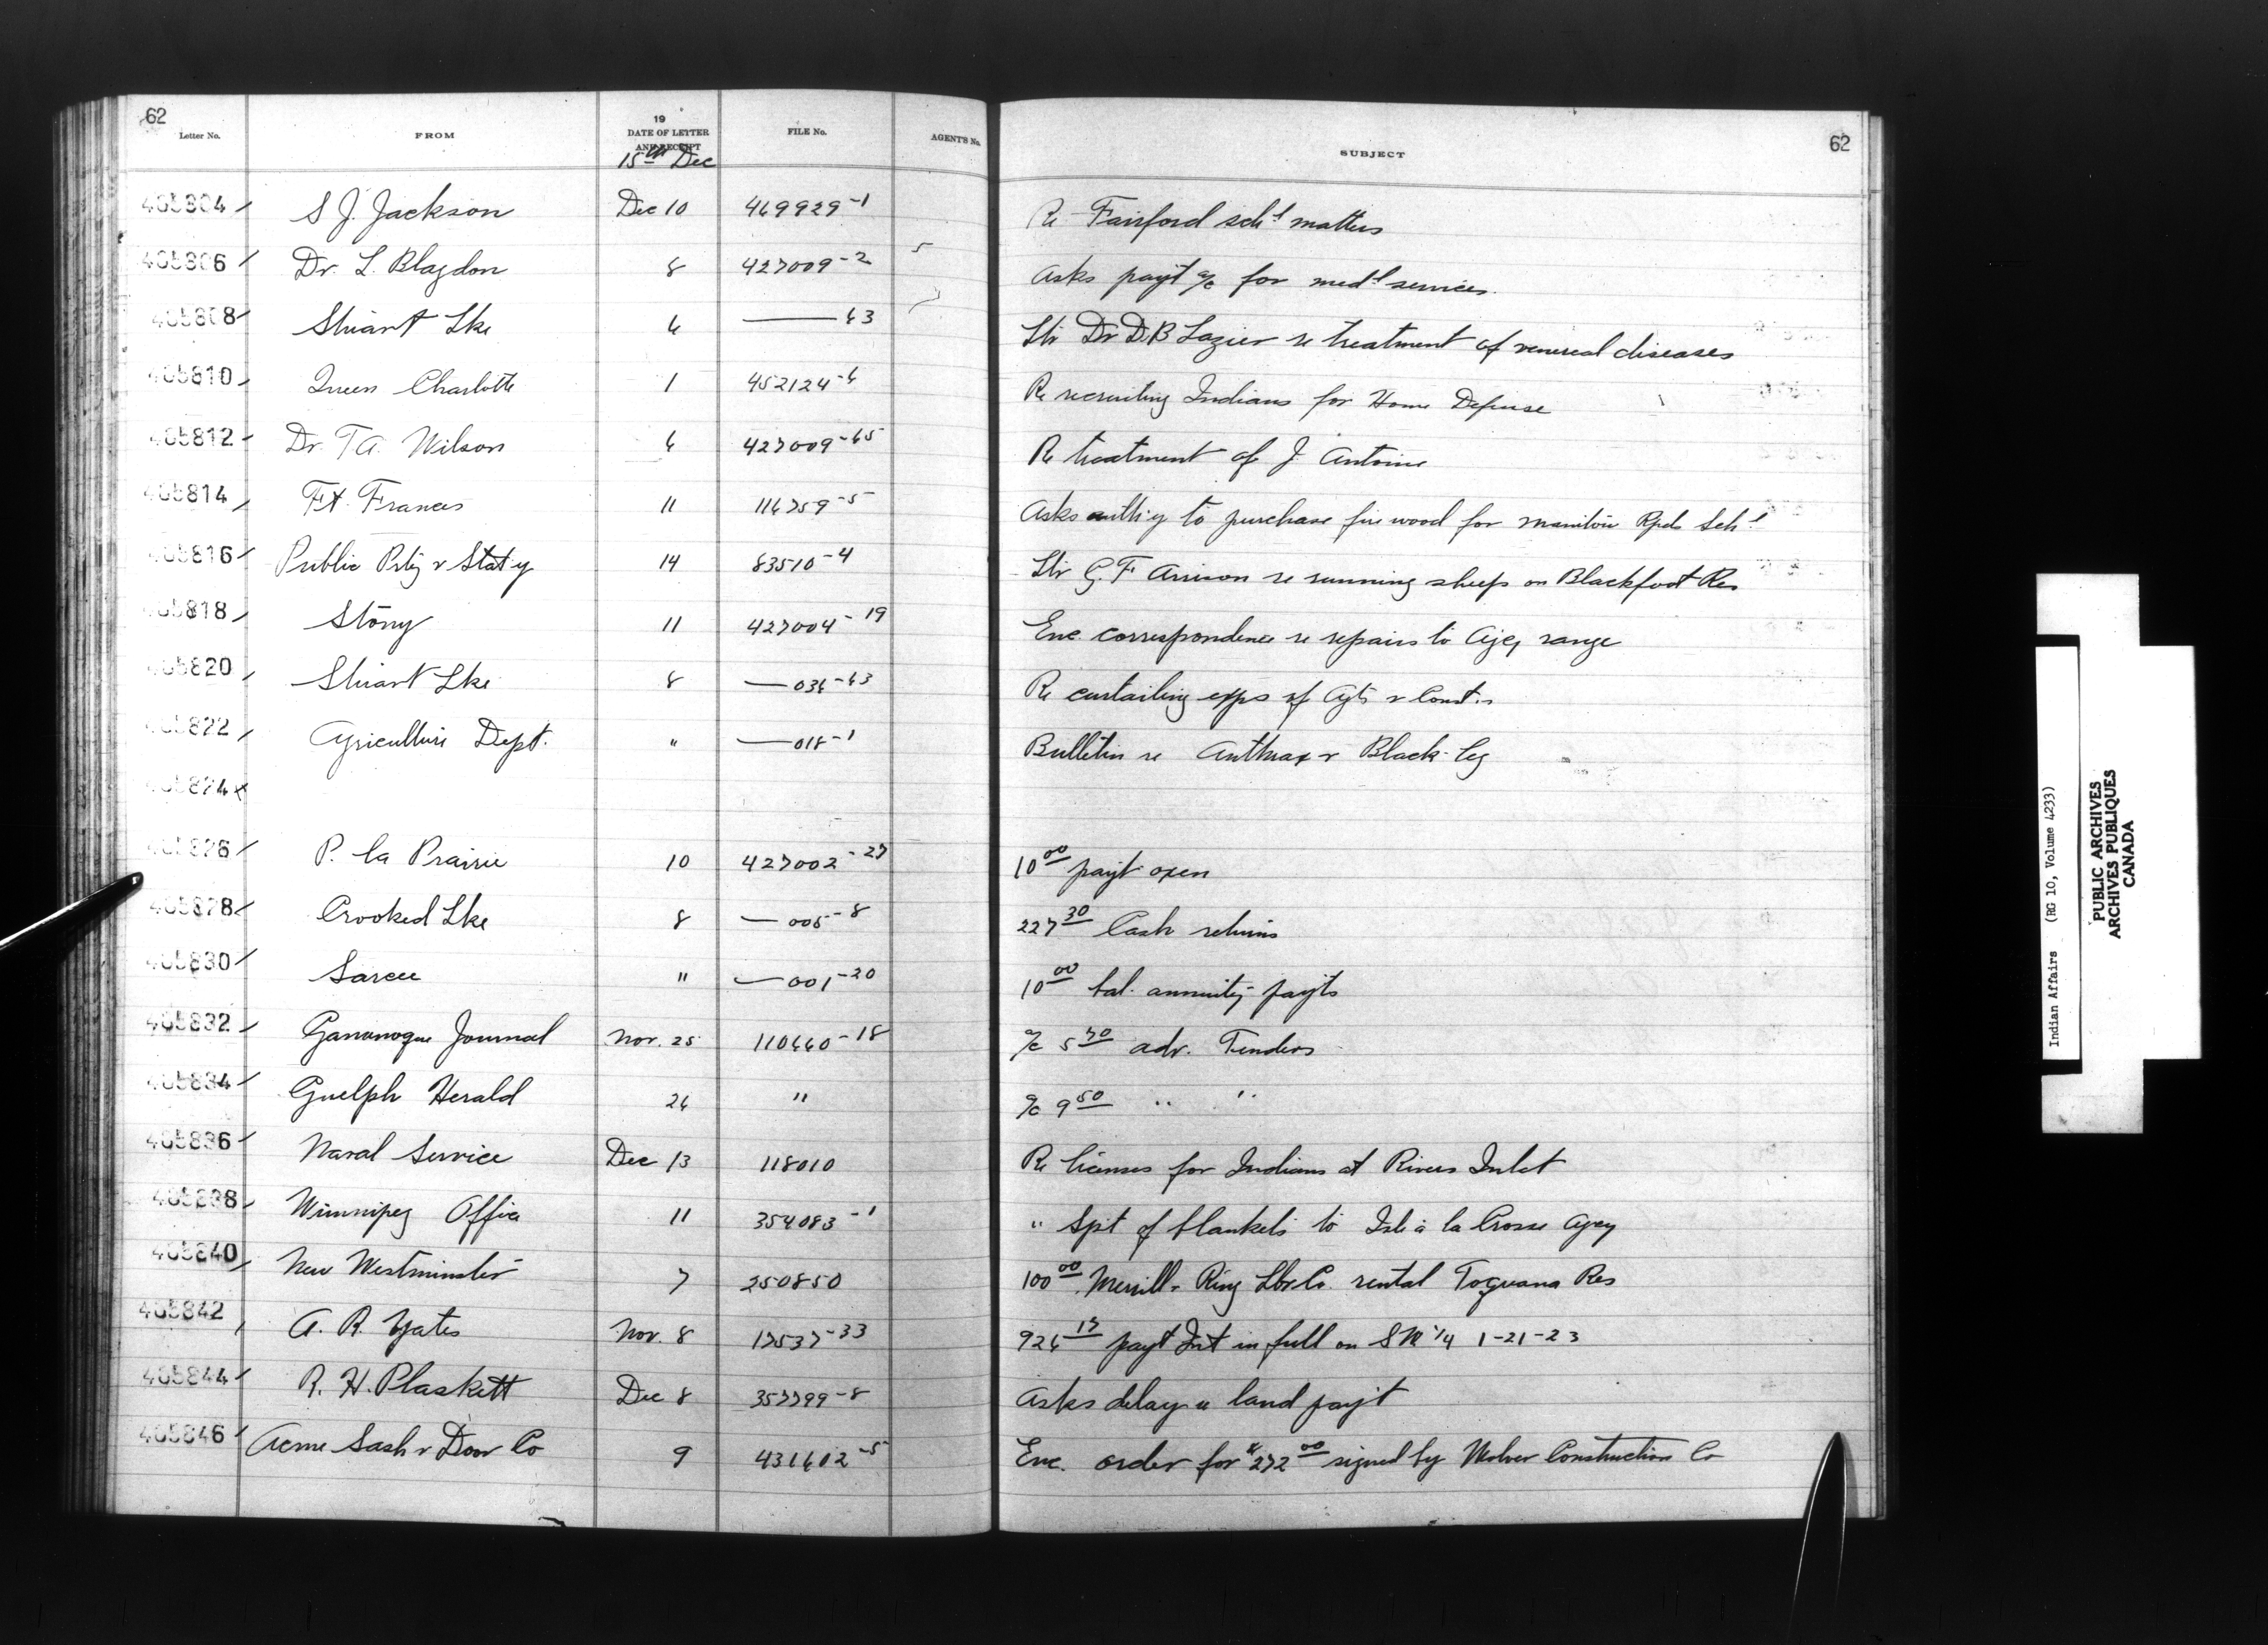 62
62
Letter No. FROM 19 DATE OF LETTER AND RECEIPT FILE No. AGENT'S No. SUBJECT
15th Dec
405804 S J. Jackson Dec 10 469929-1 Re Fairford schl matters
405806 Dr. L. Blagdon 8 427009-2 5 Asks payt a/c for medl services
405808 Stuart Lke 6 ——— 63 Ltr Dr D.B Lazier re treatment of venereal diseases
405810 Queen Charlotte 1 452124-6 Re recruiting Indians for Home Defense
405812 Dr. T A. Wilson 6 427009-65 Re treatment of J. Antoine
405814 Ft. Frances 11 116759-5 Asks auth'y to purchase fire wood for Manitou Rpds Schl
405816 Public Prtg & Stat'y 14 83510-4 Ltr G. F Arrison re running sheep on Blackfoot Res
405818 Stony 11 427004-19 Enc. correspondence re repairs to Agcy range
405820 Stuart Lke 8 —036-63 Re curtailing exps of Agts & Const.s
405822 Agriculture Dept. " —018-1 Bulletin re Anthrax & Black-leg
405824 x
405826 P. la Prairie 10 427002-27 10 00 payt oxen
405828 Crooked Lke 8 —005-8 227 30 Cash returns
405830 Sarcee " —001-20 10 00 bal. annuity payts
405832 Gananoque Journal Nov. 25 110660-18 a/c 5 70 adv. Tenders
405834 Guelph Herald 26 " a/c 9 50 " "
405836 Naval Service Dec 13 118010 Re licenses for Indians at Rivers Inlet
405838 Winnipeg Office 11 354083-1 " Spt of blankets to Isle à la Crosse Agcy
405840 New Westminster 7 250850 100 00 Merrill-Ring Lbr Co. rental Toquana Res
405842 A. R. Yates Nov. 8 17537-33 926 17 payt Int in full on S W 1/4 1-21-23
405844 R. H. Plaskett Dec 8 357799-8 Asks delay re land payt
405846 Acme Sash & Door Co 9 431602-5 Enc. order for $272 00 signed by Construction Co
Indian Affairs (RG 10, Volume 4233)
PUBLIC ARCHIVES
ARCHIVES PUBLIQUES
CANADA